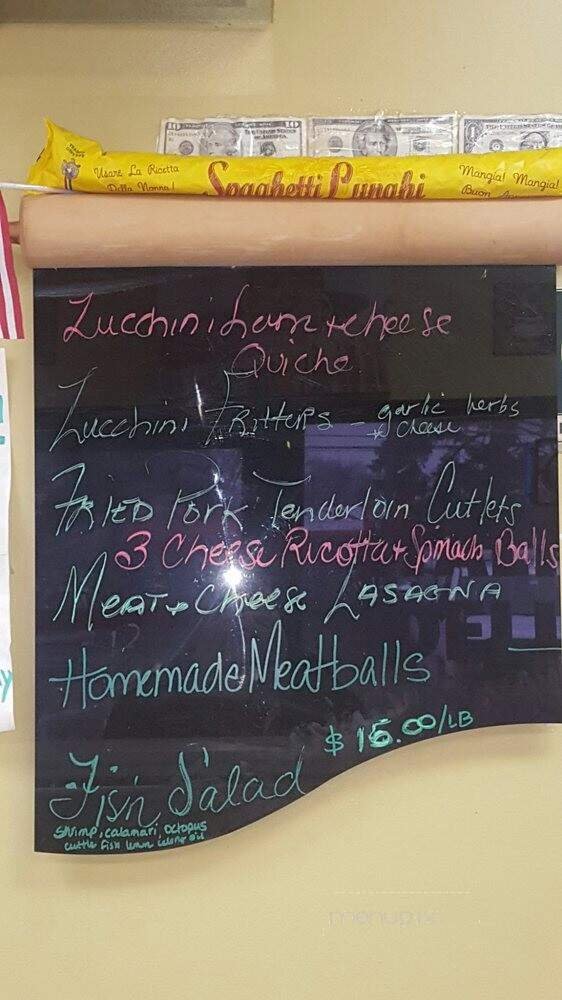 10
THE UNITED STATES
OF AMERICA
Usare La Ricetta
Della Nonna!
Spaghetti Lunghi
Mangia! Mangia!
Buon
Zucchini ham + cheese
Quiche
Zucchini FRitteRS - garlic herbs
cheese
FRIED PORK Tenderloin Cutlets
3 Cheese Ricotta + Spinach Balls
MeAT + Cheese LASAGNA
Homemade Meatballs
$ 15.00/LB
Fish Salad
shrimp, calamari, octopus
cuttle fish lemon celery oil
menupix